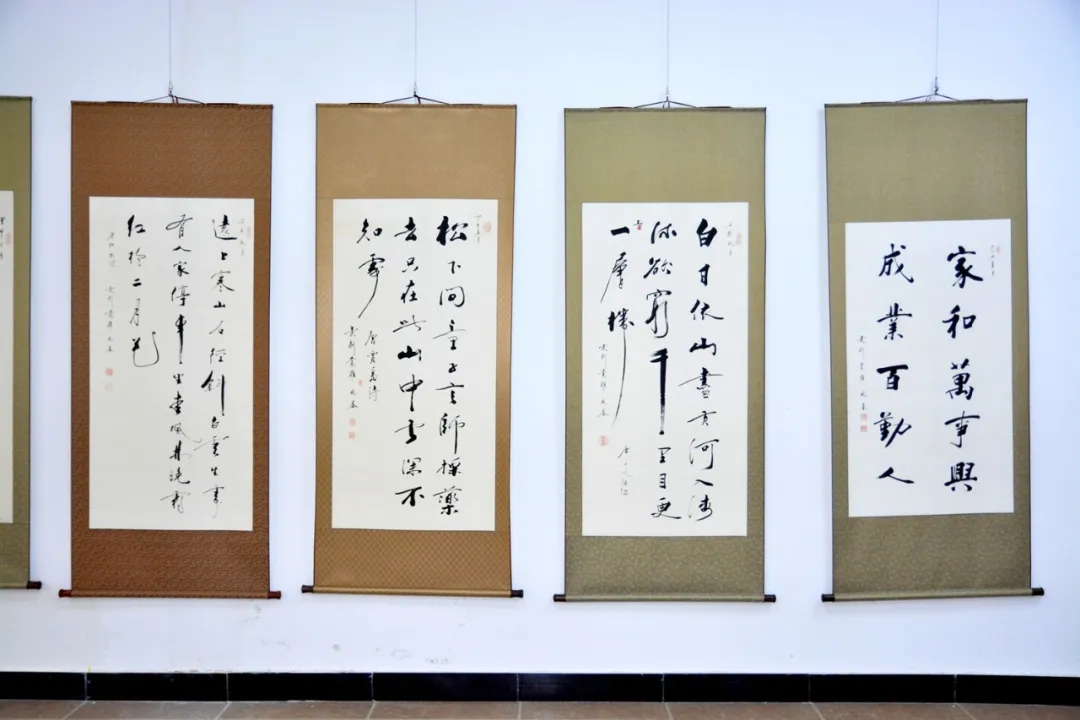 家和萬事興
成業百勤人
白日依山盡黃河入海
流欲窮千里目更
上一層樓
松下問童子言師採藥
去只在此山中雲深不
知處
唐賈島詩
遠上寒山石徑斜白雲生處
有人家停車坐愛楓林晚霜
紅於二月花